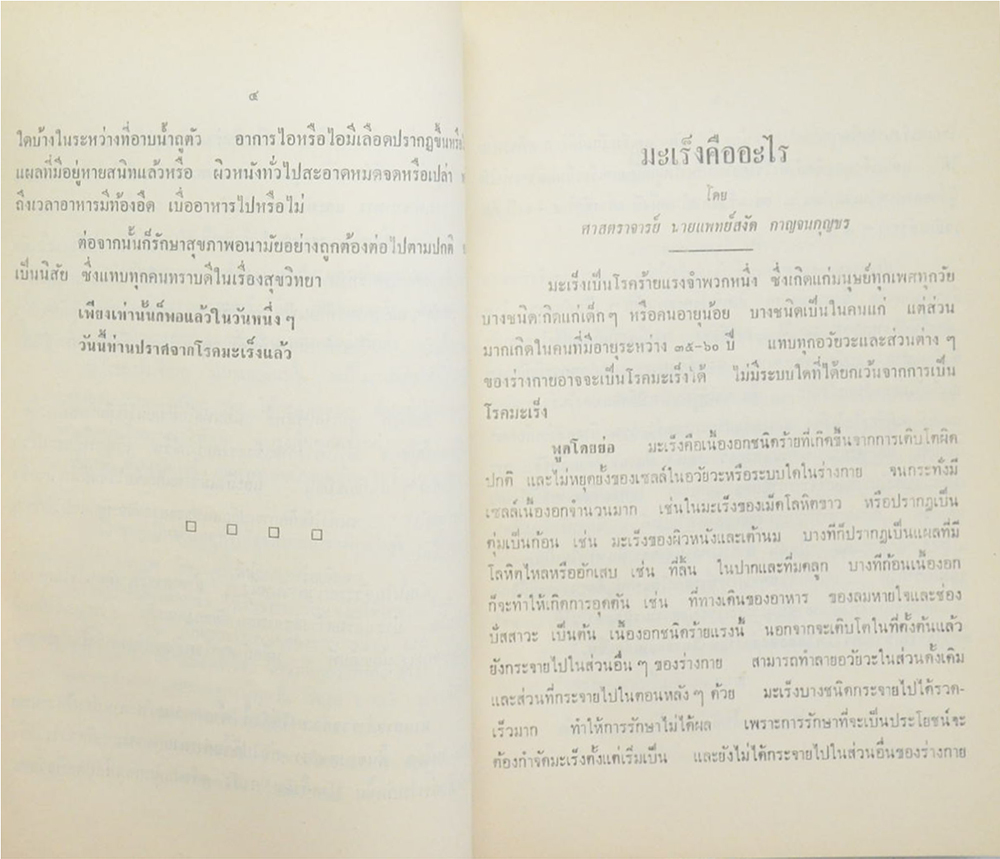 ๔
ใดบ้างในระหว่างที่อาบน้ำถูตัว อาการไอหรือไอมีเลือดปรากฏขึ้น
แผลที่มีอยู่หายสนิทแล้วหรือ ผิวหนังทั่วไปสะอาดหมดจดหรือเปล่า
ถึงเวลาอาหารมีท้องอืด เบื่ออาหารไปหรือไม่
ต่อจากนั้นก็รักษาสุขภาพอนามัยอย่างถูกต้องต่อไปตามปกติ
เป็นนิสัย ซึ่งแทบทุกคนทราบดีในเรื่องสุขวิทยา
เพียงเท่านั้นก็พอแล้วในวันหนึ่ง ๆ
วันนี้ท่านปราศจากโรคมะเร็งแล้ว
มะเร็งคืออะไร
โดย
ศาสตราจารย์ นายแพทย์สงัด กาญจนกุญชร
มะเร็งเป็นโรคร้ายแรงจำพวกหนึ่ง ซึ่งเกิดแก่มนุษย์ทุกเพศทุกวัย
บางชนิดเกิดแก่เด็กๆ หรือคนอายุน้อย บางชนิดเป็นในคนแก่ แต่ส่วน
มากเกิดในคนที่มีอายุระหว่าง ๓๕-๖๐ ปี แทบทุกอวัยวะและส่วนต่าง ๆ
ของร่างกายอาจจะเป็นโรคมะเร็งได้ ไม่มีระบบใดที่ได้ยกเว้นจากการเป็น
โรคมะเร็ง
พูดโดยย่อ มะเร็งคือเนื้องอกชนิดร้ายที่เกิดขึ้นจากการเติบโตผิด
ปกติ และไม่หยุดยั้งของเซลล์ในอวัยวะหรือระบบใดในร่างกาย จนกระทั่งมี
เซลล์เนื้องอกจำนวนมาก เช่นในมะเร็งของเม็ดโลหิตขาว หรือปรากฏเป็น
ตุ่มเป็นก้อน เช่น มะเร็งของผิวหนังและเต้านม บางทีก็ปรากฏเป็นแผลที่มี
โลหิตไหลหรืออักเสบ เช่น ที่ลิ้น ในปากและที่มดลูก บางทีก้อนเนื้องอก
ก็จะทำให้เกิดการอุดตัน เช่น ที่ทางเดินของอาหาร ของลมหายใจและช่อง
ปัสสาวะ เป็นต้น เนื้องอกชนิดร้ายแรงนี้ นอกจากจะเติบโตในที่ตั้งต้นแล้ว
ยังกระจายไปในส่วนอื่น ๆ ของร่างกาย สามารถทำลายอวัยวะในส่วนดั้งเดิม
และส่วนที่กระจายไปในตอนหลัง ๆ ด้วย มะเร็งบางชนิดกระจายไปได้รวด-
เร็วมาก ทำให้การรักษาไม่ได้ผล เพราะการรักษาที่จะเป็นประโยชน์จะ
ต้องกำจัดมะเร็งตั้งแต่เริ่มเป็น และยังไม่ได้กระจายไปในส่วนอื่นของร่างกาย